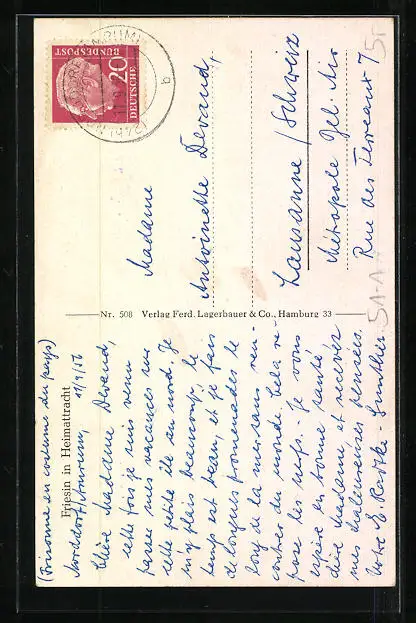 (Frisonne en costume du pays)
Friesin in Heimattracht
Norddorf/Amrum, 11/9/56
Chère Madame Devaud,
cette fois je suis venu
passer mes vacances sur
cette petite île au nord. Je
m'y plais beaucoup, le
temps est beau, et je fais
de longues promenades le
long de la mer sans ren-
contrer du monde. Cela re-
pose les nerfs. - Je vous
espère en bonne santé
chère Madame, et recevez
mes chaleureuses pensées.
Votre E. Günther
Nr. 508 Verlag Ferd. Lagerbauer & Co., Hamburg 33
DEUTSCHE
BUNDESPOST
20
AMRUM
b
Madame
Antoinette Devaud,
Lausanne / Schweiz
Métropole Bel-Air
Rue des Terreaux 7
5,-
51-1